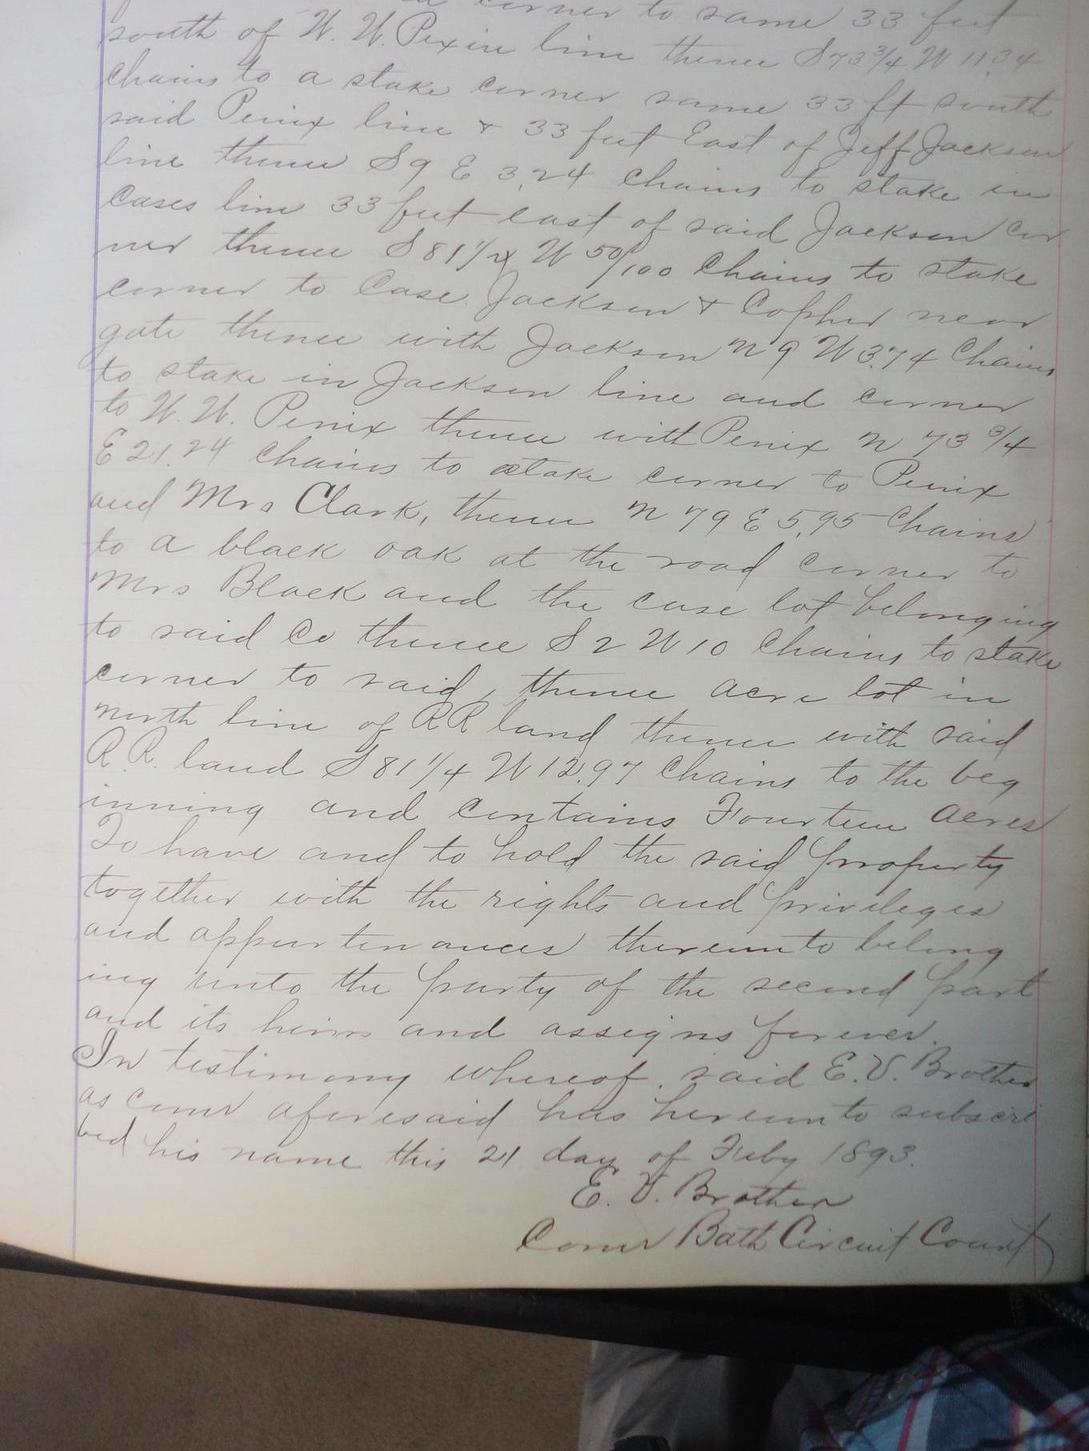 corner to same 33 feet
south of W. W. Pexin line thence S 73 3/4 W 11.34
chains to a stake corner same 33 ft south
said Penix line & 33 feet East of Jeff Jackson
line thence S 9 E 3.24 chains to stake in
Cases line 33 feet east of said Jackson cor
ner thence S 81 1/4 W 50/100 Chains to stake
corner to Case Jackson & Copher near
gate thence with Jackson N 9 W 3.74 Chains
to stake in Jackson line and corner
to W. W. Penix thence with Penix N 73 3/4
E 21.24 Chains to stake corner to Penix
and Mrs Clark, thence N 79 E 5.95 Chains
to a black oak at the road corner to
Mrs Black and the case lot belonging
to said Co thence S 2 W 10 Chains to stake
corner to said, thence acre lot in
north line of RR land thence with said
R. R. land S 81 1/4 W 12.97 Chains to the beg
inning and contains Fourteen acres
To have and to hold the said property
together with the rights and privileges
and appurtenances thereunto belong
ing unto the party of the second part
and its heirs and assigns forever.
In testimony whereof, said E. V. Brother
as comr aforesaid has hereunto subscri
bed his name this 21 day of Feby 1893.
E. V. Brother
Comr Bath Circuit Court